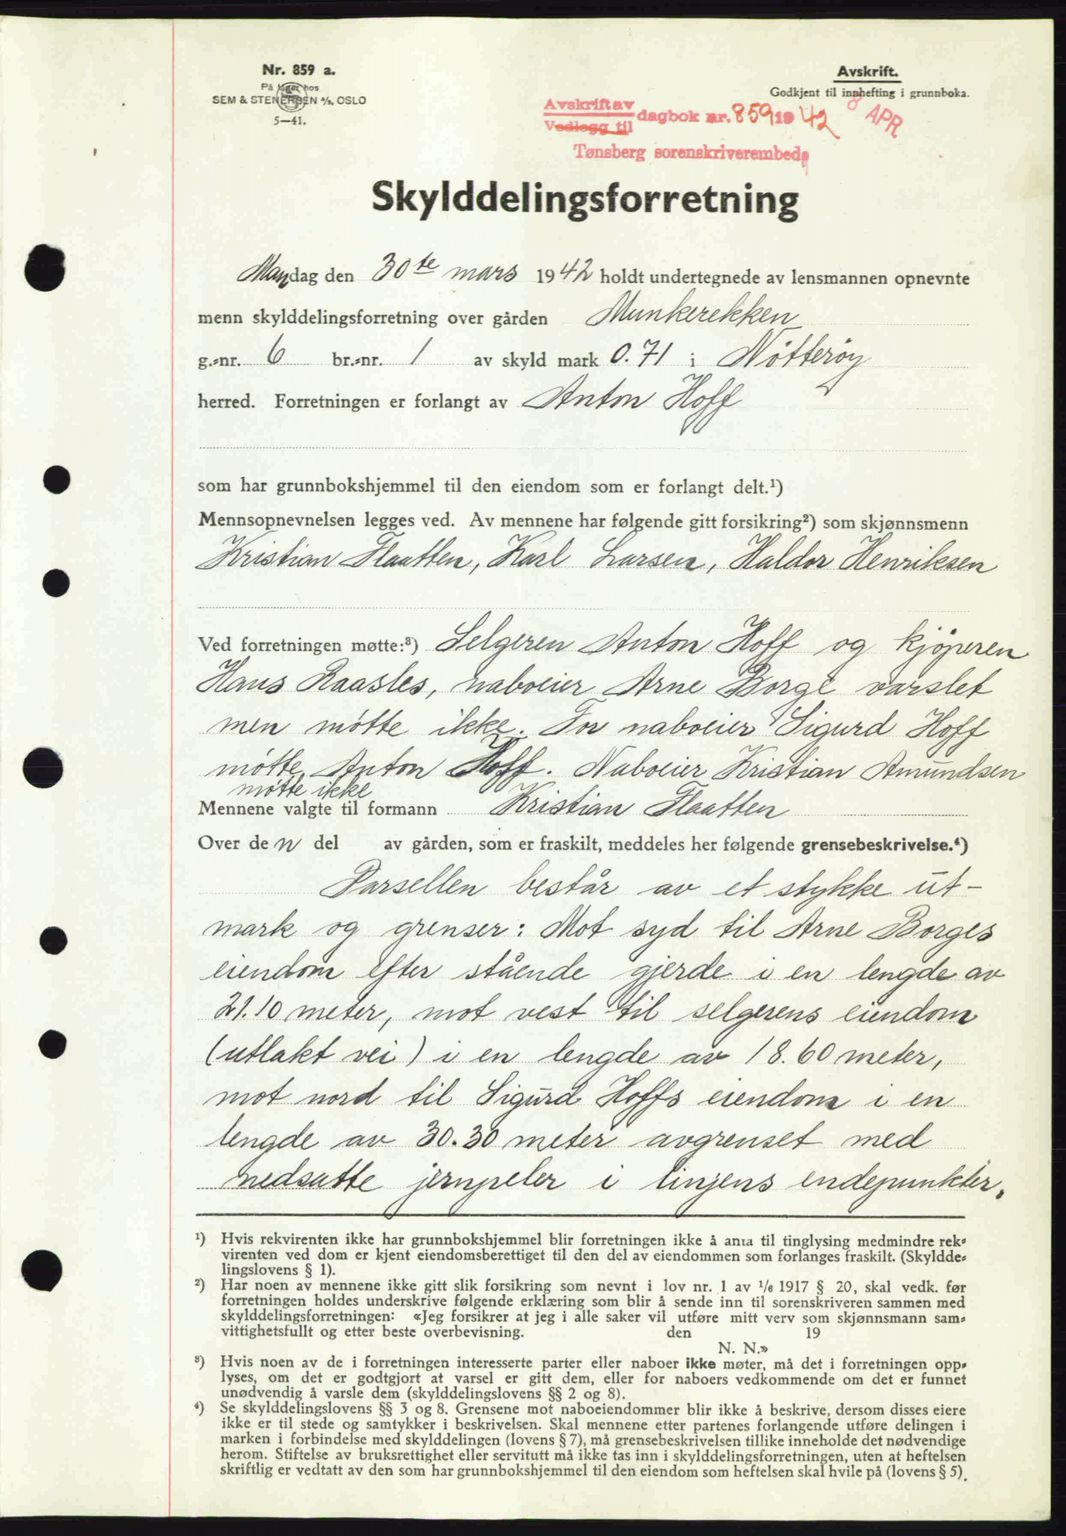 Nr. 859 a.
På lager hos
SEM & STENERSEN A/S, OSLO
5—41.
Avskrift.
Godkjent til innhefting i grunnboka.
Avskrift av
Vedlegg til
dagbok nr. 859 19 42
8 APR
Tønsberg sorenskriverembede
Skylddelingsforretning
Mandag den 30te mars 1942 holdt undertegnede av lensmannen opnevnte
menn skylddelingsforretning over gården Munkerekken
g.-nr. 6 br.-nr. 1 av skyld mark 0.71 i Nøtterøy
herred. Forretningen er forlangt av Anton Hoff
som har grunnbokshjemmel til den eiendom som er forlangt delt.¹)
Mennsopnevnelsen legges ved. Av mennene har følgende gitt forsikring²) som skjønnsmenn
Kristian Flaatten, Karl Larsen, Haldor Henriksen
Ved forretningen møtte:³) Selgeren Anton Hoff og kjøperen
Hans Raasles, naboeier Arne Borge varslet
men møtte ikke. For naboeier Sigurd Hoff
møtte Anton Hoff. Naboeier Kristian Amundsen
møtte ikke
Mennene valgte til formann Kristian Flaatten
Over den del av gården, som er fraskilt, meddeles her følgende grensebeskrivelse.⁴)
Parsellen består av et stykke ut-
mark og grenser: Mot syd til Arne Borges
eiendom efter stående gjerde i en lengde av
21.10 meter, mot vest til selgerens eiendom
(utlakt vei) i en lengde av 18.60 meter,
mot nord til Sigurd Hoffs eiendom i en
lengde av 30.30 meter avgrenset med
nedsatte jernpeler i linjens endepunkter.
¹) Hvis rekvirenten ikke har grunnbokshjemmel blir forretningen ikke å anta til tinglysing medmindre rek-
virenten ved dom er kjent eiendomsberettiget til den del av eiendommen som forlanges fraskilt. (Skyldde-
lingslovens § 1).
²) Har noen av mennene ikke gitt slik forsikring som nevnt i lov nr. 1 av 1/6 1917 § 20, skal vedk. før
forretningen holdes underskrive følgende erklæring som blir å sende inn til sorenskriveren sammen med
skylddelingsforretningen: «Jeg forsikrer at jeg i alle saker vil utføre mitt verv som skjønnsmann sam-
vittighetsfullt og etter beste overbevisning. den 19
N. N.»
³) Hvis noen av de i forretningen interesserte parter eller naboer ikke møter, må det i forretningen opp-
lyses, om det er godtgjort at varsel er gitt dem, eller for naboers vedkommende om det er funnet
unødvendig å varsle dem (skylddelingslovens §§ 2 og 8).
⁴) Se skylddelingslovens §§ 3 og 8. Grensene mot naboeiendommer blir ikke å beskrive, dersom disses eiere
ikke er til stede og samtykker i beskrivelsen. Skal mennene etter partenes forlangende utføre delingen i
marken i forbindelse med skylddelingen (lovens § 7), må grensebeskrivelsen tillike inneholde det nødvendige
herom. Stiftelse av bruksrettighet eller servitutt må ikke tas inn i skylddelingsforretningen, uten at heftelsen
skriftlig er vedtatt av den som har grunnbokshjemmel til den eiendom som heftelsen skal hvile på (lovens § 5).